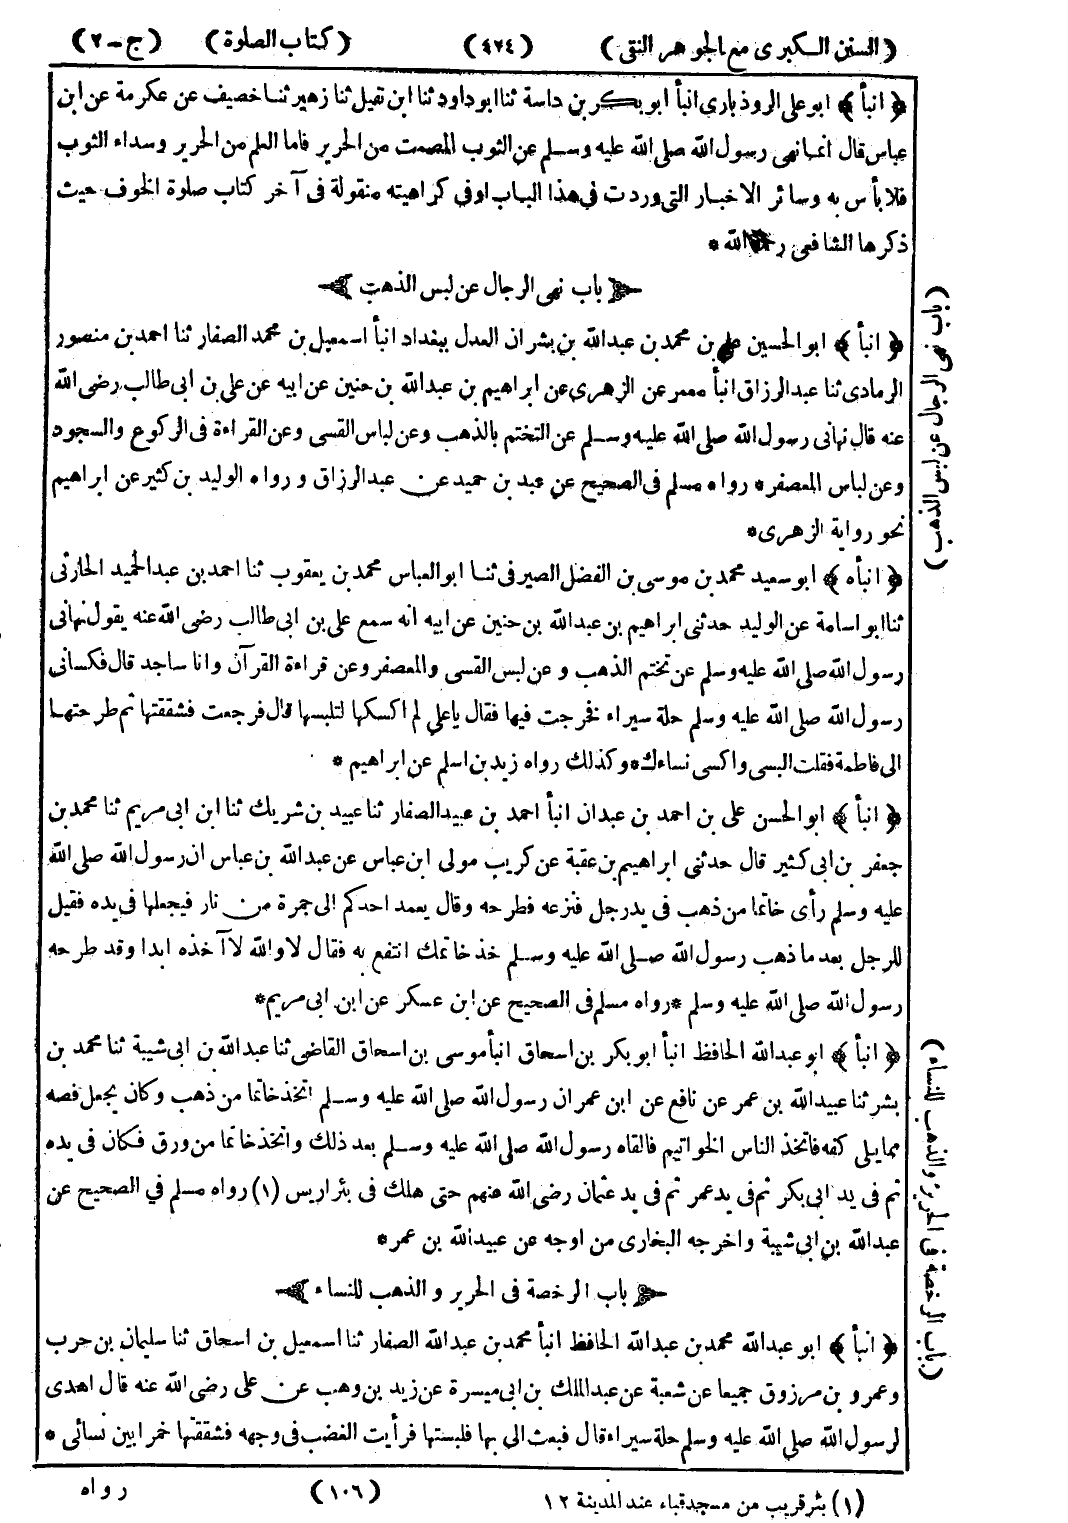 (السنن الكبرى مع الجوهر النقى) (٤٢٤) (كتاب الصلوة) (ج-٢)
﴿ انبأ ﴾ ابو على الروذبارى انبأ ابو بكر بن داسة ثنا ابو داود ثنا ابن نفيل ثنا زهير ثنا خصيف عن عكرمة عن ابن
عباس قال انما نهى رسول الله صلى الله عليه وسلم عن الثوب المصمت من الحرير فاما العلم من الحرير وسداء الثوب
فلا بأس به وسائر الاخبار التى وردت فى هذا الباب او فى كراهيته منقولة فى آخر كتاب صلوة الخوف حيث
ذكرها الشافعى الله *
باب نهى الرجال عن لبس الذهب
﴿ انبأ ﴾ ابو الحسين على بن محمد بن عبدالله بن بشران العدل ببغداد انبأ اسمعيل بن محمد الصفار ثنا احمد بن منصور
الرمادى ثنا عبدالرزاق انبأ معمر عن الزهرى عن ابراهيم بن عبدالله بن حنين عن ابيه عن على بن ابى طالب رضى الله
عنه قال نهانى رسول الله صلى الله عليه وسلم عن التختم بالذهب وعن لباس القسى وعن القراءة فى الركوع والسجود
وعن لباس المعصفر * رواه مسلم فى الصحيح عن عبد بن حميد عن عبدالرزاق ورواه الوليد بن كثير عن ابراهيم
نحو رواية الزهرى *
﴿ انبأه ﴾ ابو سعيد محمد بن موسى بن الفضل الصيرفى ثنا ابو العباس محمد بن يعقوب ثنا احمد بن عبدالحميد الحارثى
ثنا ابو اسامة عن الوليد حدثنى ابراهيم بن عبدالله بن حنين عن ابيه انه سمع على بن ابى طالب رضى الله عنه يقول نهانى
رسول الله صلى الله عليه وسلم عن تختم الذهب وعن لبس القسى والمعصفر وعن قراءة القرآن وانا ساجد قال فكسانى
رسول الله صلى الله عليه وسلم حلة سيراء فخرجت فيها فقال ياعلى لم اكسكها لتلبسها قال فرجعت فشققتها ثم طرحتها
الى فاطمة فقلت البسى واكسى نساءك * وكذلك رواه زيد بن اسلم عن ابراهيم *
﴿ انبأ ﴾ ابو الحسن على بن احمد بن عبدان انبأ احمد بن عبيد الصفار ثنا عبيد بن شريك ثنا ابن ابى مريم ثنا محمد بن
جعفر بن ابى كثير قال حدثنى ابراهيم بن عقبة عن كريب مولى ابن عباس عن عبدالله بن عباس ان رسول الله صلى الله
عليه وسلم رأى خاتما من ذهب فى يد رجل فنزعه فطرحه وقال يعمد احدكم الى جمرة من نار فيجعلها فى يده فقيل
للرجل بعد ما ذهب رسول الله صلى الله عليه وسلم خذ خاتمك انتفع به فقال لا والله لا آخذه ابدا وقد طرحه
رسول الله صلى الله عليه وسلم * رواه مسلم فى الصحيح عن ابن عسكر عن ابن ابى مريم *
﴿ انبأ ﴾ ابو عبدالله الحافظ انبأ ابو بكر بن اسحاق انبأ موسى بن اسحاق القاضى ثنا عبدالله بن ابى شيبة ثنا محمد بن
بشر ثنا عبيدالله بن عمر عن نافع عن ابن عمر ان رسول الله صلى الله عليه وسلم اتخذ خاتما من ذهب وكان يجعل فصه
مما يلى كفه فاتخذ الناس الخواتيم فالقاه رسول الله صلى الله عليه وسلم بعد ذلك واتخذ خاتما من ورق فكان فى يده
ثم فى يد ابى بكر ثم فى يد عمر ثم فى يد عثمان رضى الله عنهم حتى هلك فى بئر اريس (١) رواه مسلم في الصحيح عن
عبدالله بن ابى شيبة واخرجه البخارى من اوجه عن عبيدالله بن عمر *
باب الرخصة فى الحرير والذهب للنساء
﴿ انبأ ﴾ ابو عبدالله محمد بن عبدالله الحافظ انبأ محمد بن عبدالله الصفار ثنا اسمعيل بن اسحاق ثنا سليمان بن حرب
وعمرو بن مرزوق جميعا عن شعبة عن عبدالملك بن ابى ميسرة عن زيد بن وهب عن على رضى الله عنه قال اهدى
لرسول الله صلى الله عليه وسلم حلة سيراء قال فبعث الى بها فلبستها فرأيت الغضب فى وجهه فشققتها خمرا بين نسائى *
(١) بئر قريب من مسجد قباء عند المدينة ١٢
(١٠٦)
رواه
(باب نهى الرجال عن لبس الذهب)
(باب الرخصة فى الحرير والذهب للنساء)